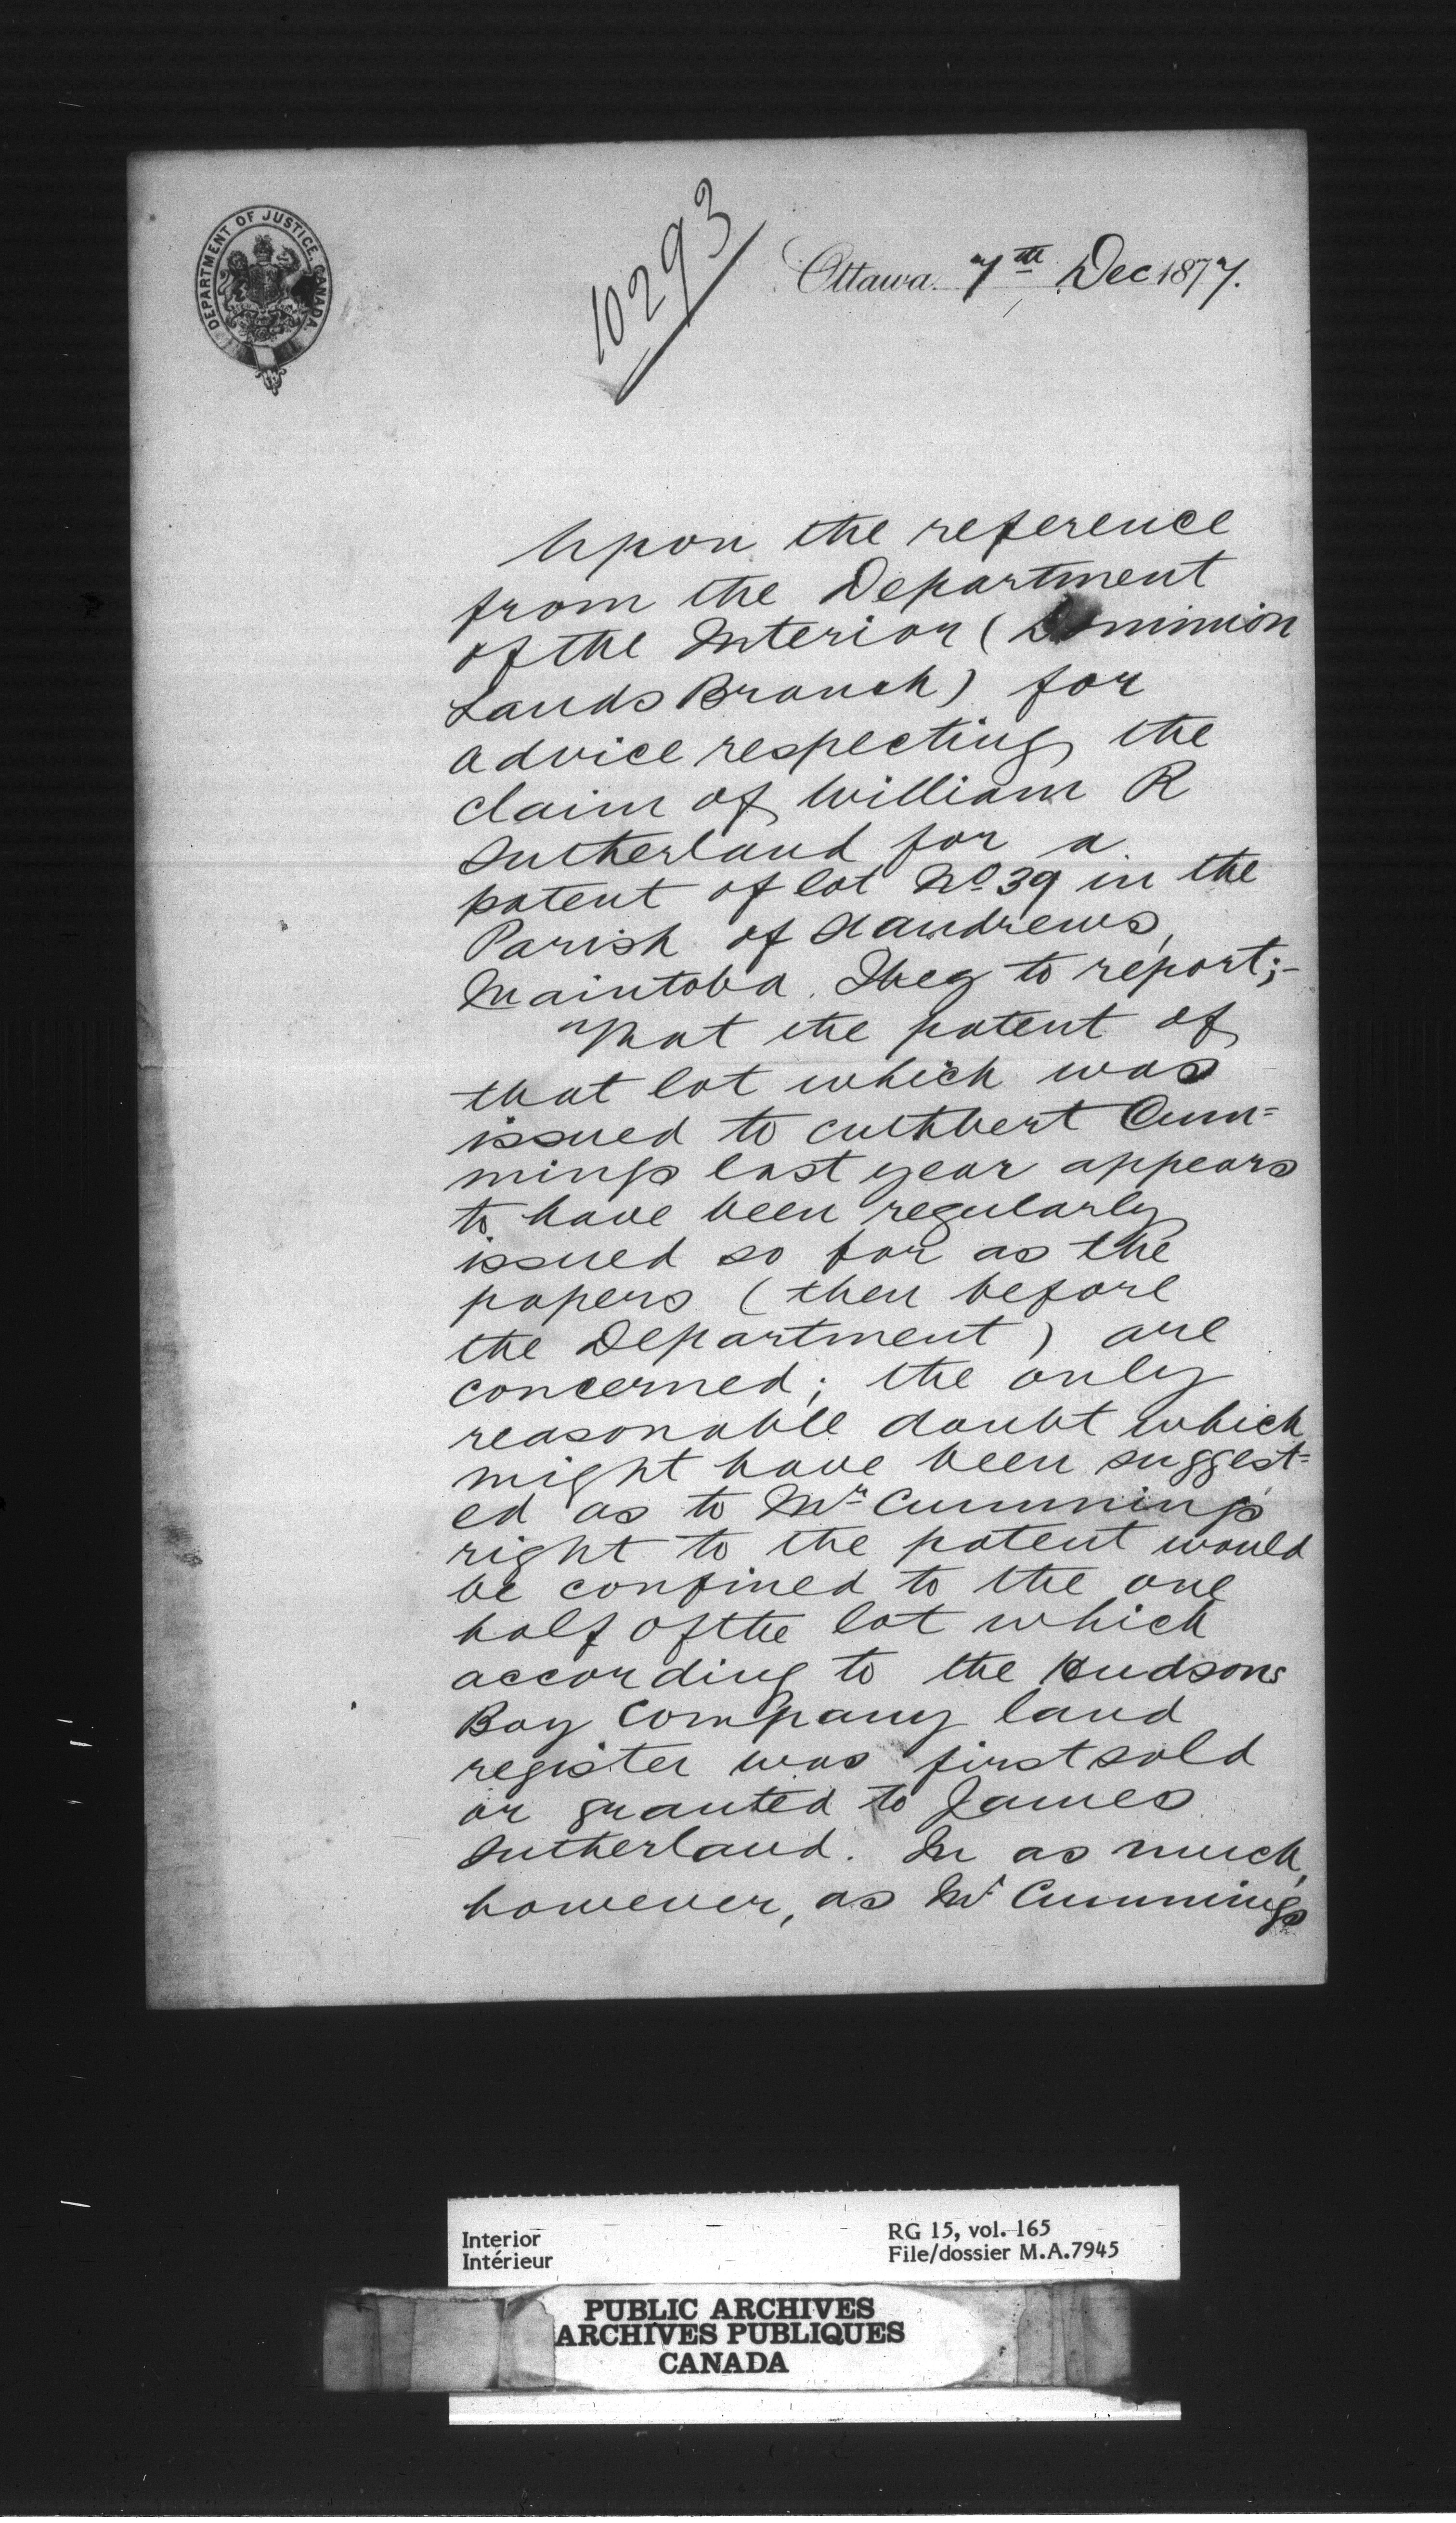 DEPARTMENT OF JUSTICE, CANADA
10293
Ottawa. 7th Dec 1877.
Upon the reference
from the Department
of the Interior (Dominion
Lands Branch) for
advice respecting the
claim of William R
Sutherland for a
patent of lot No 39 in the
Parish of St Andrews,
Maintoba. I beg to report;-
That the patent of
that lot which was
issued to cuthbert Cum=
mings last year appears
to have been regularly
issued so far as the
papers (then before
the Department) are
concerned; the only
reasonable doubt which
might have been suggest=
ed as to Mr Cummings
right to the patent would
be confined to the one
half of the lot which
according to the Hudsons
Bay Company land
register was first sold
or granted to James
Sutherland. In as much,
however, as Mr Cummings
Interior
Intérieur
RG 15, vol. 165
File/dossier M.A.7945
PUBLIC ARCHIVES
ARCHIVES PUBLIQUES
CANADA